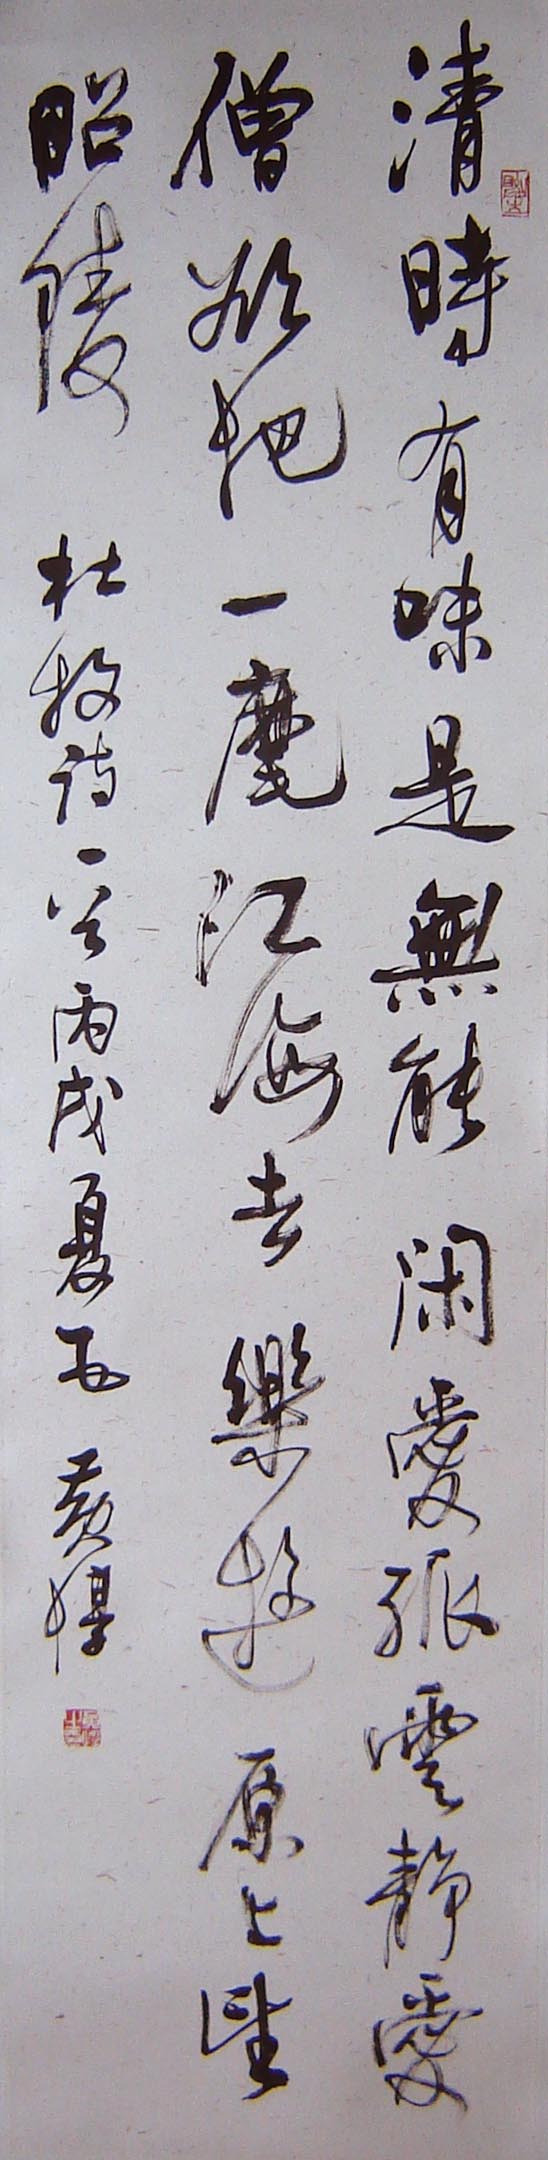 清時有味是無能閑愛孤雲静愛
僧欲把一麾江海去樂遊原上望
昭陵 杜牧诗一首丙戌夏五 黄惇